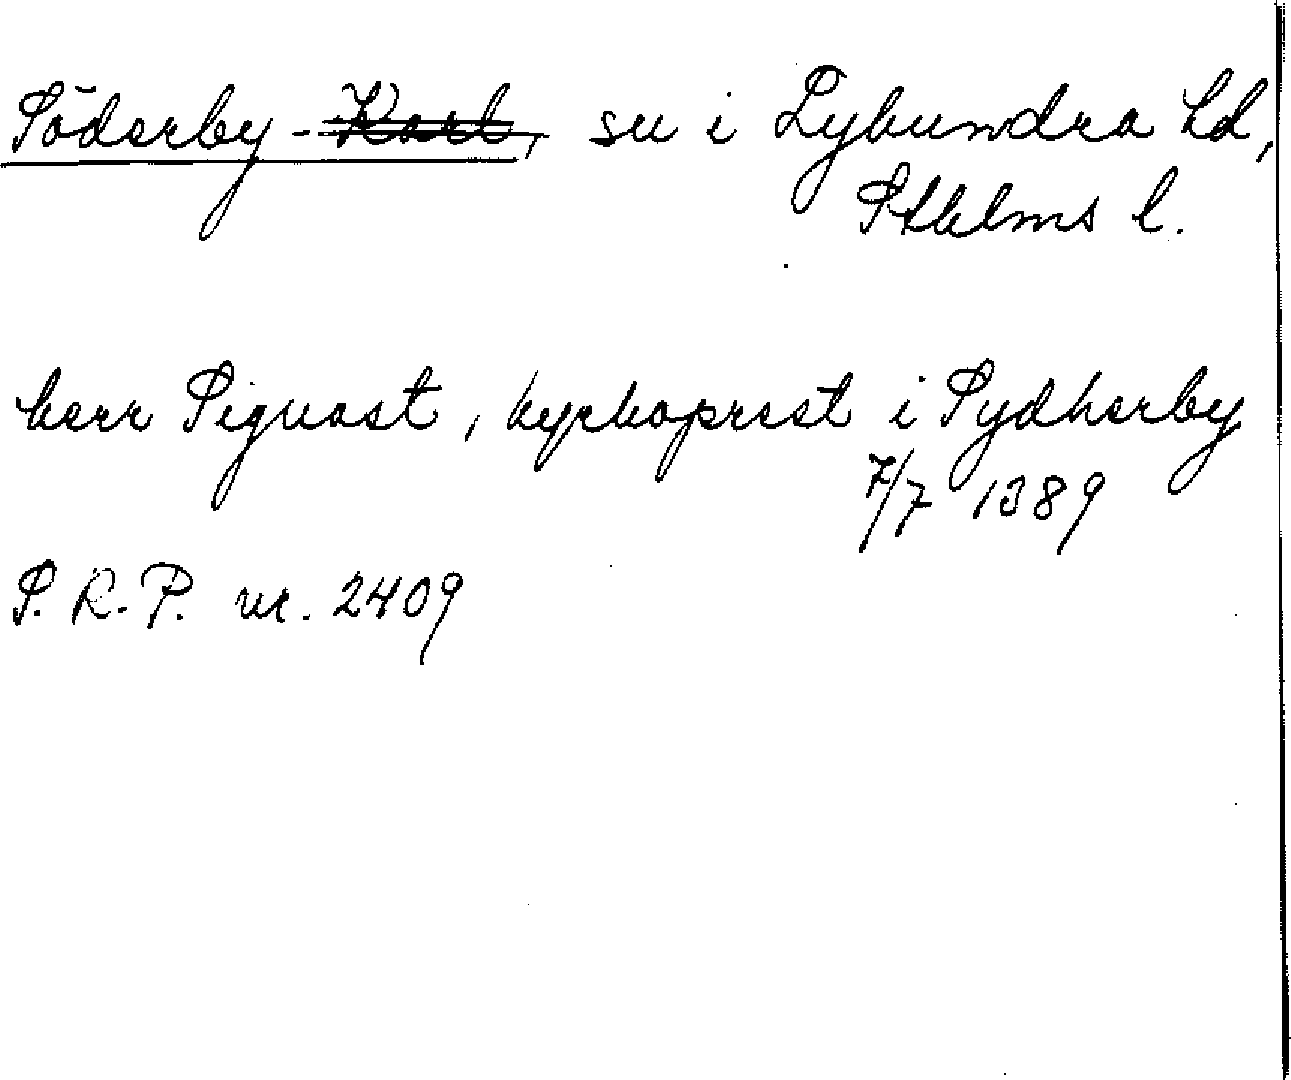 Söderby-Karl, sn i Lyhundra hd,
Sthlms l.
herr Siguast, kyrkoprest i Sydherby
7/7 1389
S.R.P. nr. 2409